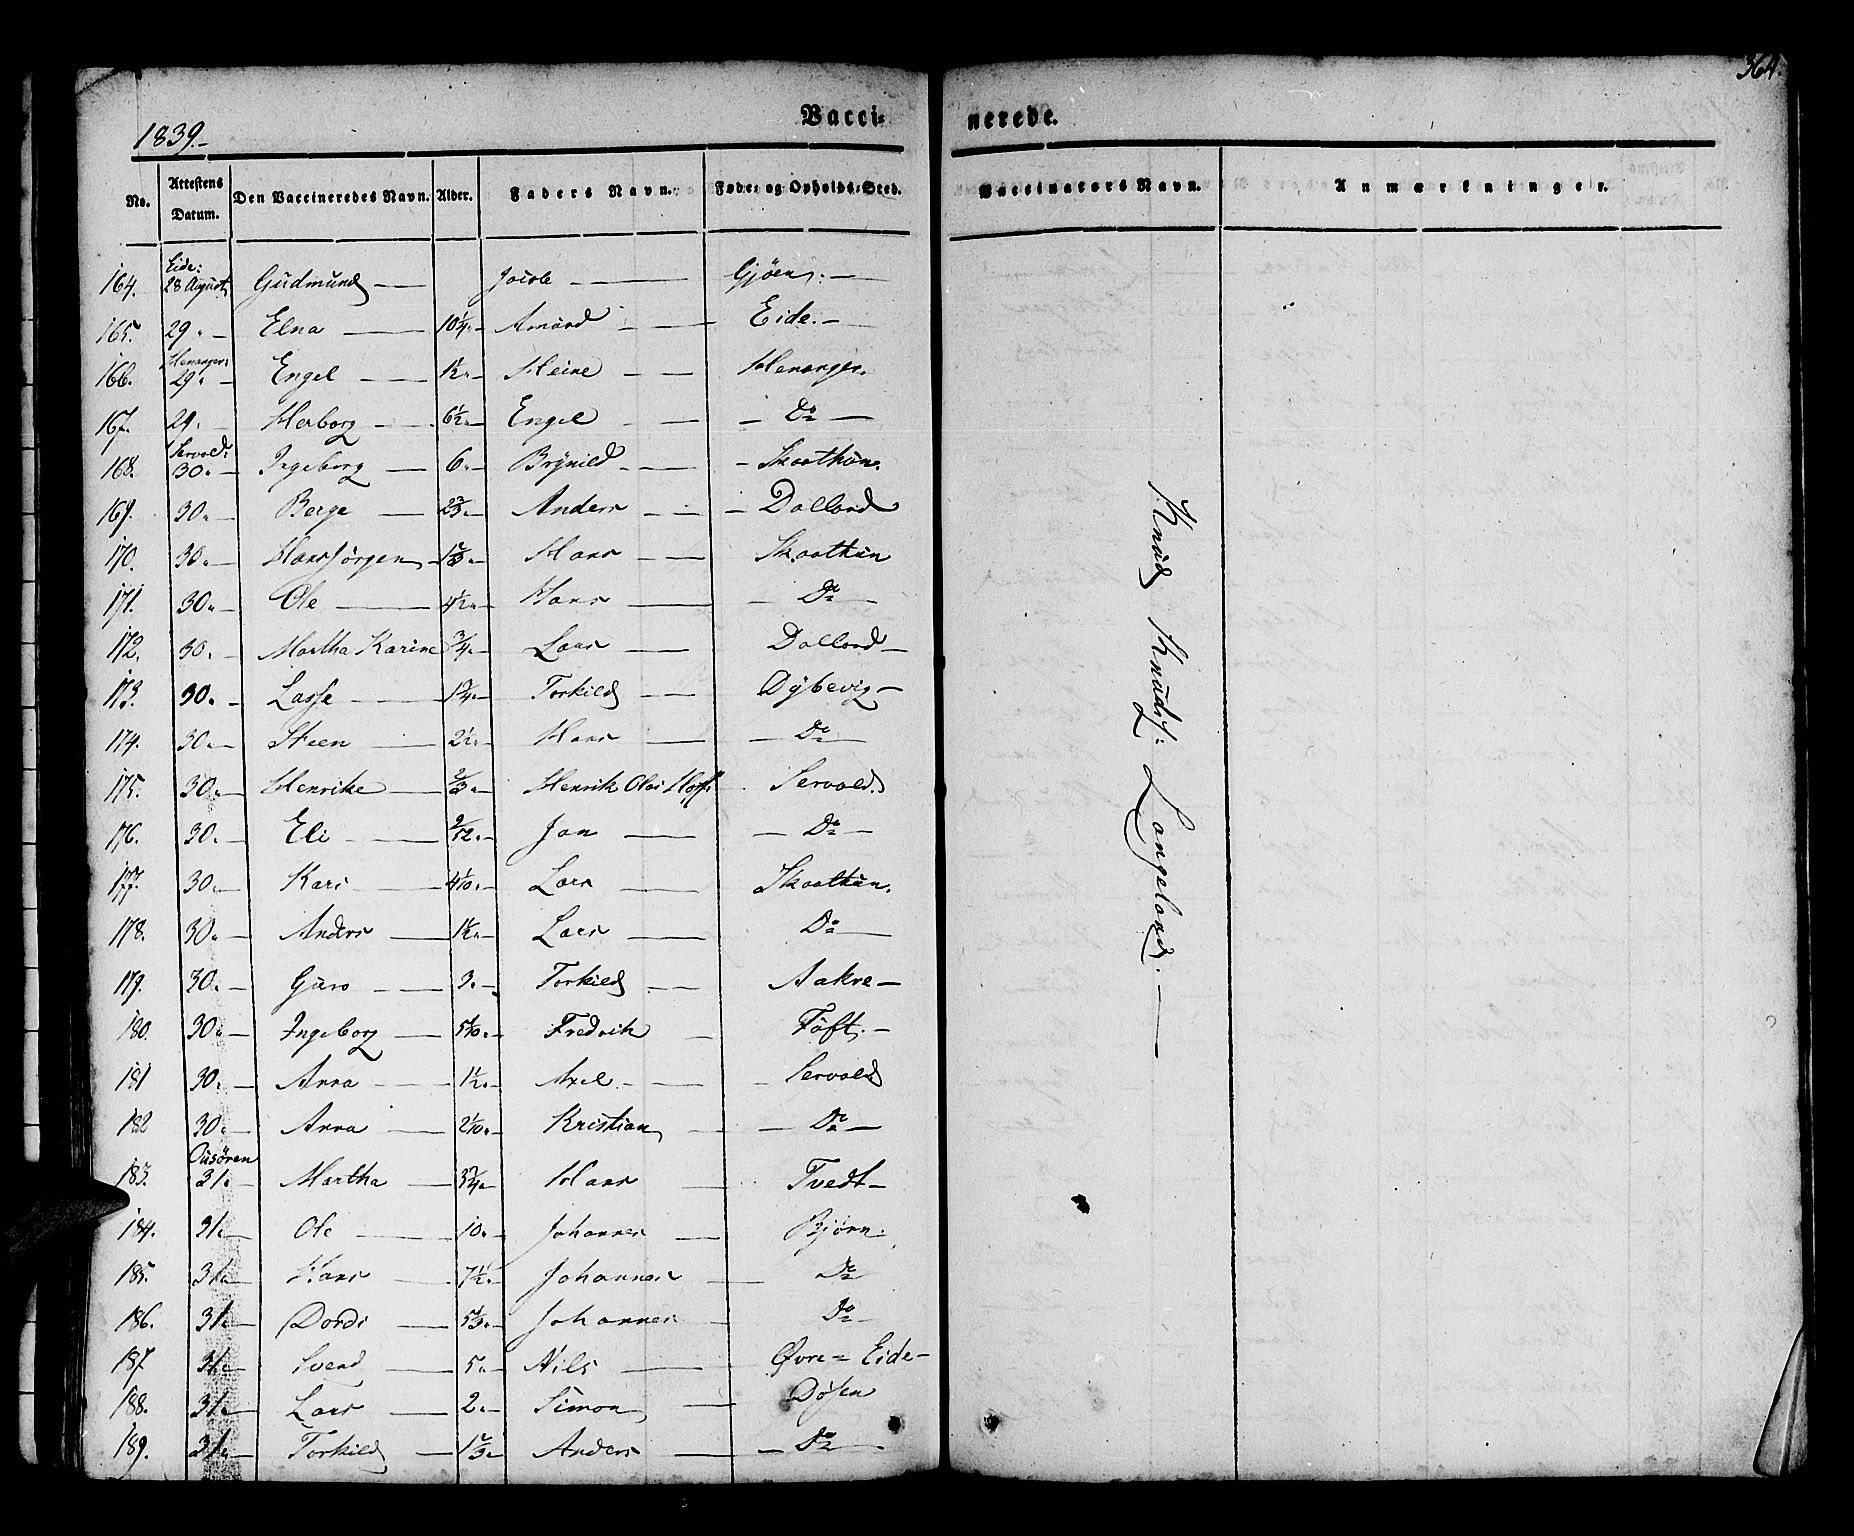 364.
1839.-
Vacci= nerede.
No. | Attestens Datum. | Den Vaccineredes Navn. | Alder. | Faders Navn. | Føde= og Opholds=Sted. | Vaccinators Navn. | Anmærkninger.
164. Eide: 28 August Gudmund — Jacob — Gjøen. —
165. 29 " Elna — 10 1/4 " Amund — Eide. —
166. Henanger: 29 " — Engel — 1/2 " Heine — Henanger.
167. 29. — Herborg — 6 1/2 " Engel — Do —
168. Servold: 30 " — Ingeborg — 6 " Brynild — Skaathun.
169. 30 " — Berge — 2 2/3 " Anders — Dalland
170. 30 " — Hans Jørgen — 1 2/3 " Hans — Skaathun
171. 30 " — Ole — 4 1/2 " Hans — Do —
172. 30 " — Martha Karine 3/4 " Lars — Dalland —
173. 30 " — Lasse — 1 3/4 " Torkild — Dybevig —
174. 30 " — Steen — 2 1/2 " Hans — Do —
175. 30 " — Henrike — 2/3 " Henrik Olai — Servold.
176. 30 " — Eli — 9/12 " Jan — Do —
177. 30 " — Kari — 4 1/10 " Lars — Skaathun.
178. 30 " — Anders — 1 1/2 " Lars — Do —
179. 30 " — Guro — 3 " Torkild — Aakre —
180. 30 " — Ingeborg — 5 " Fredrik — Tøft. —
181 30 " — Anna — 1 1/2 " Axel — Servold
182 30 " — Anna — 2 1/10 " Kristian — Do —
183. Ousøren 31 " — Martha — 3 3/4 " Hans — Tvedt —
184. 31 " — Ole — 10 " Johannes — Bjørn.
185. 31 " — Hans — 7 1/2 " Johannes — Do
186. 31 " — Dordi — 5 1/3 " Johannes — Do
187 31 " — Svend — 5 " Nils — Øvre = Eide —
188. 31 " — Lars — 2 " Simon — Døsen
189. 31 " — Torkild — 1 2/3 " Anders — Do —
Knud Knuds: Langeland. —